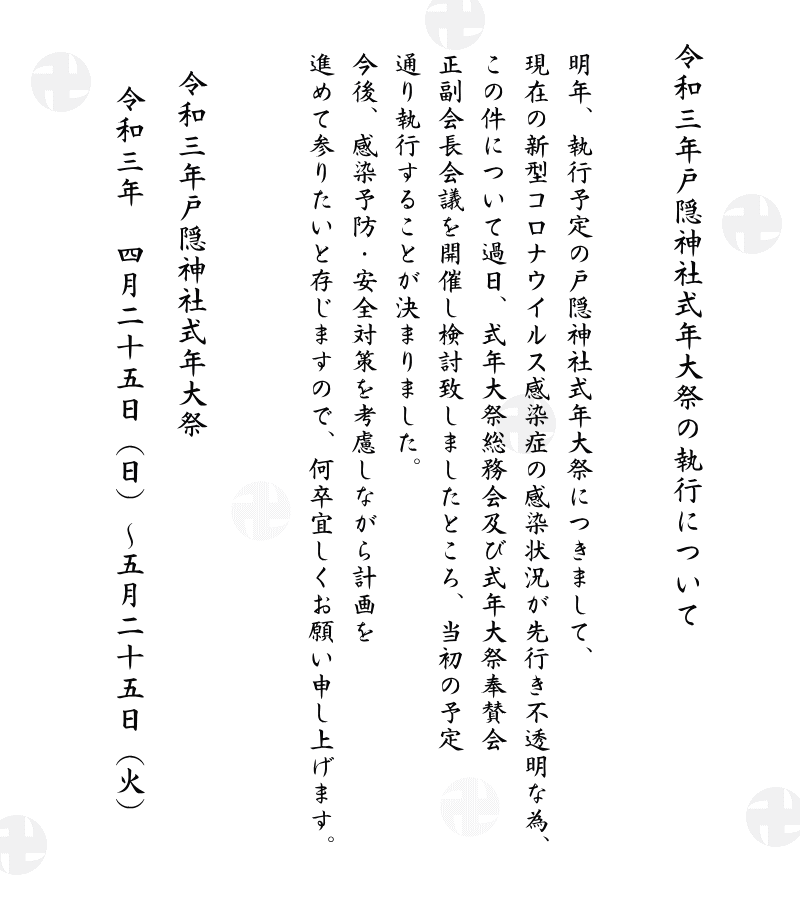 令和三年戸隠神社式年大祭の執行について
明年、執行予定の戸隠神社式年大祭につきまして、
現在の新型コロナウイルス感染症の感染状況が先行き不透明な為、
この件について過日、式年大祭総務会及び式年大祭奉賛会
正副会長会議を開催し検討致しましたところ、当初の予定
通り執行することが決まりました。
今後、感染予防・安全対策を考慮しながら計画を
進めて参りたいと存じますので、何卒宜しくお願い申し上げます。
令和三年戸隠神社式年大祭
令和三年　四月二十五日（日）～五月二十五日（火）